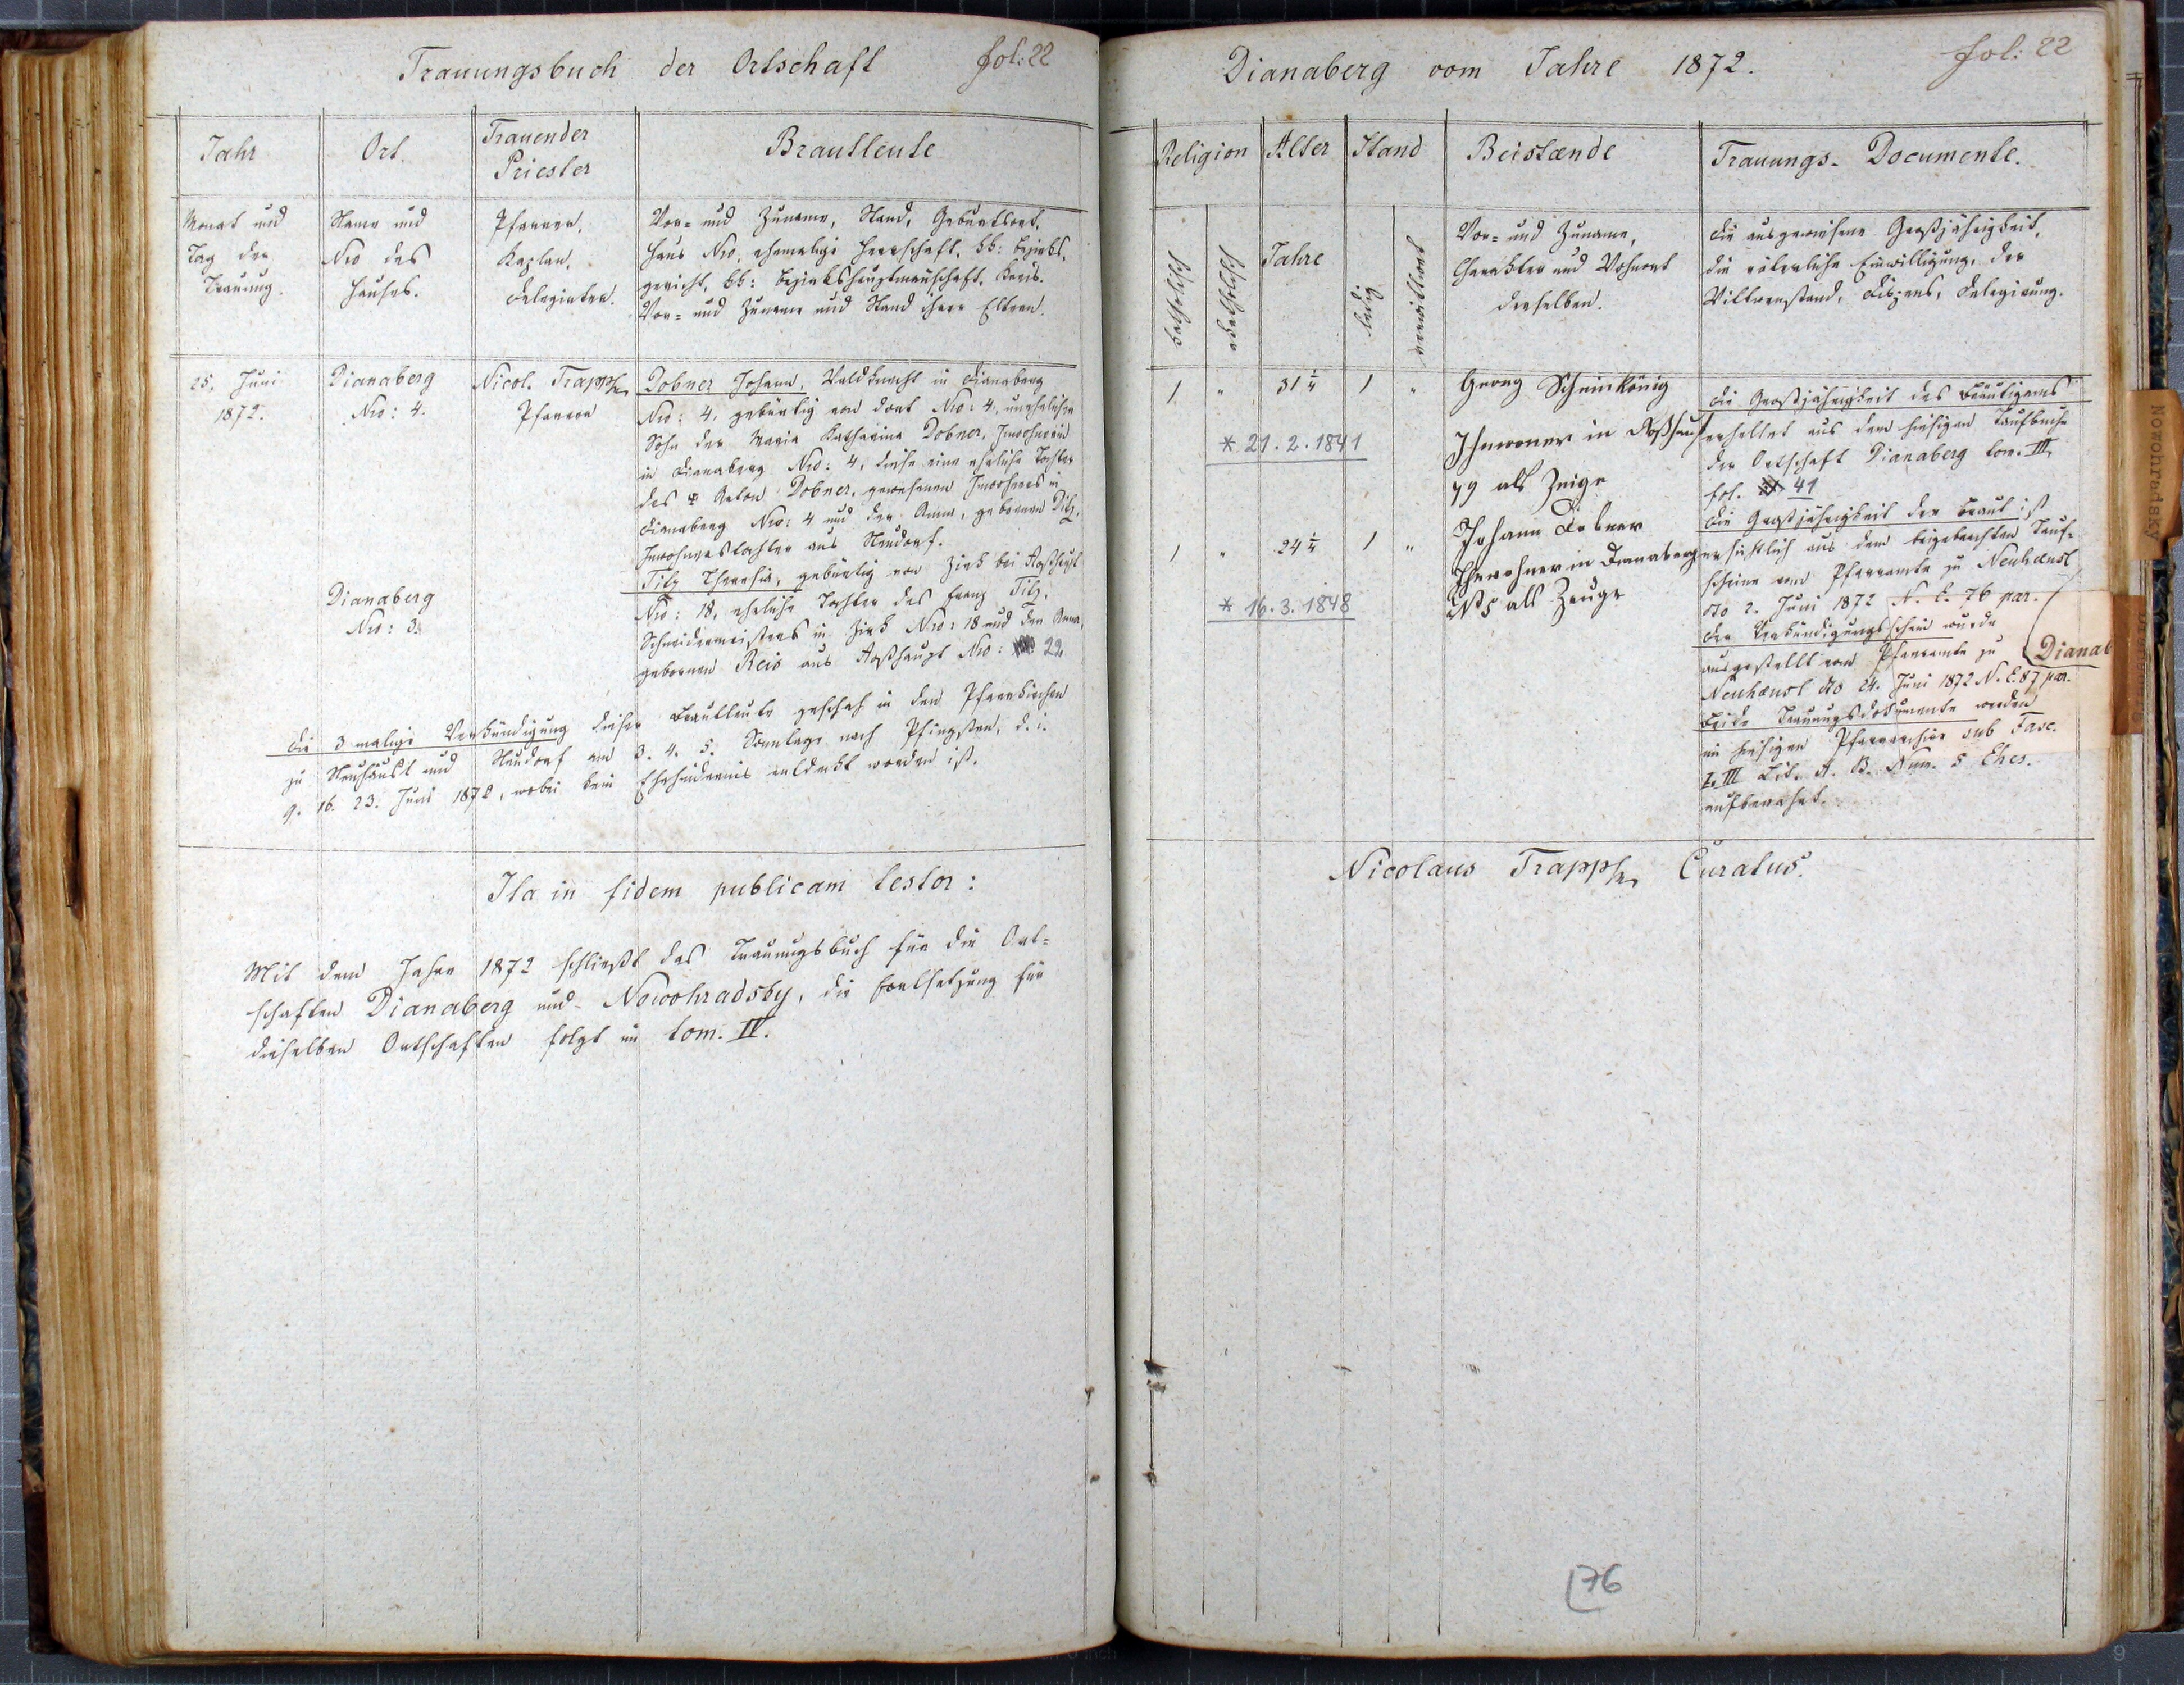 Trauungsbuch der Ortschaft
fol: 22
Jahr
Ort.
Trauender
Priester
Brautleute
Monat und
Tag der
Trauung.
Name und
Nro des
Hauses.
Pfarrer,
Kaplan,
Delegirter.
Vor- und Zuname, Stand, Geburtsort,
Haus Nro, ehemalige Herrschaft, kk: Bezirks-
gericht, kk: Bezirkshauptmannschaft, Kreis.
Vor- und Zuname und Stand ihrer Eltern.
25. Juni
1872.
Dianaberg
Nro: 4.
Nicol. Trapp
Pfarrer
Dobner Johann, Waldknecht in Dianaberg
Nro: 4, gebürtig von dort Nro: 4, unehelicher
Sohn der Maria Katharina Dobner, Inwohnerin
in Dianaberg Nro: 4, diese eine eheliche Tochter
des Anton Dobner, gewesenen Inwohners in
Dianaberg Nro: 4 und der Anna, gebornen Dilz,
Inwohnerstochter aus Neudorf.
Dianaberg
Nro: 3.
Tilz Theresia, gebürtig von Zirk bei Roßhaupt
Nro: 18, eheliche Tochter des Franz Tilz,
Schneidermeisters in Zirk Nro: 18 und der Anna,
gebornen Reis aus Roßhaupt Nro: 22.
Die 3 malige Verkündigung dieser Brautleute geschah in den Pfarrkirchen
zu Neuhäusl und Neudorf am 3. 4. 5. Sonntage nach Pfingsten, d. i.
9. 16. 23. Juni 1872, wobei kein Ehehinderniß entdeckt worden ist.
Ita in fidem publicam testor:
Mit dem Jahre 1872 schließt das Trauungsbuch für die Ort-
schaften Dianaberg und Nowohradsky, die Fortsetzung für
dieselben Ortschaften folgt im tom. IV.
Dianaberg vom Jahre 1872.
fol: 22
Religion
Alter
Stand
Beistænde
Trauungs-Documente.
katholisch
akatholisch
Jahre
ledig
verwittwet
Vor- und Zuname,
Charakter und Wohnort
derselben.
Die ausgewiesene Großjährigkeit,
die väterliche Einwilligung, der
Wittwenstand, Dispens, Delegirung.
1 " 31 1/4 1 "
* 21.2.1841
Georg Scheinkönig
Ihnwoner in Roßhaupt
79 als Zeige
1 " 24 1/4 1 "
* 16.3.1848
Johann Dobner
Ihnwohner in Dianaberg
N 5 als Zeuge
Die Großjährigkeit des Bräutigams
erhellet aus dem hiesigen Taufbuche
der Ortschaft Dianaberg tom. III.
fol. 41
Die Großjährigkeit der Braut ist
ersichtlich aus dem beigebrachten Tauf-
scheine vom Pfarramte zu Neuhæusl
dto 2. Juni 1872 N. E. 76 par.
Der Verkündigungsschein wurde
ausgestellt vom Pfarramte zu
Neuhæusl dto 24. Juni 1872 N. E. 87 par.
Beide Trauungsdokumente werden
im hiesigen Pfarrarchive sub Fasc.
Z. III Lit. A. B. Num. 5 Ehes.
aufbewahrt.
Dianab
Nowohradsky
Nicolaus Trapp Curatus.
176